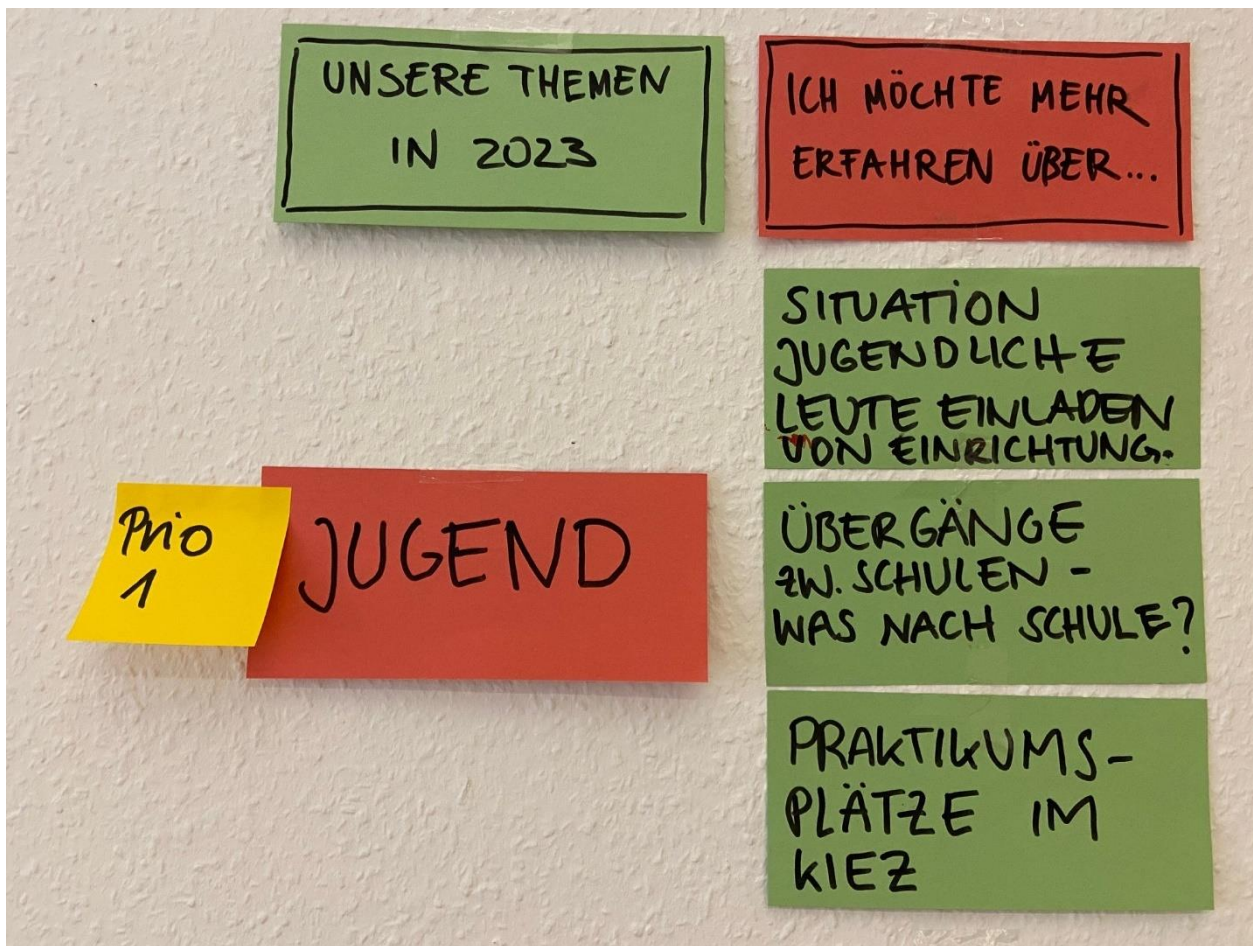 UNSERE THEMEN
IN 2023
ICH MÖCHTE MEHR
ERFAHREN ÜBER...
Prio
1
JUGEND
SITUATION
JUGENDLICHE
LEUTE EINLADEN
VON EINRICHTUNG.
ÜBERGÄNGE
ZW. SCHULEN -
WAS NACH SCHULE?
PRAKTIKUMS-
PLÄTZE IM
KIEZ